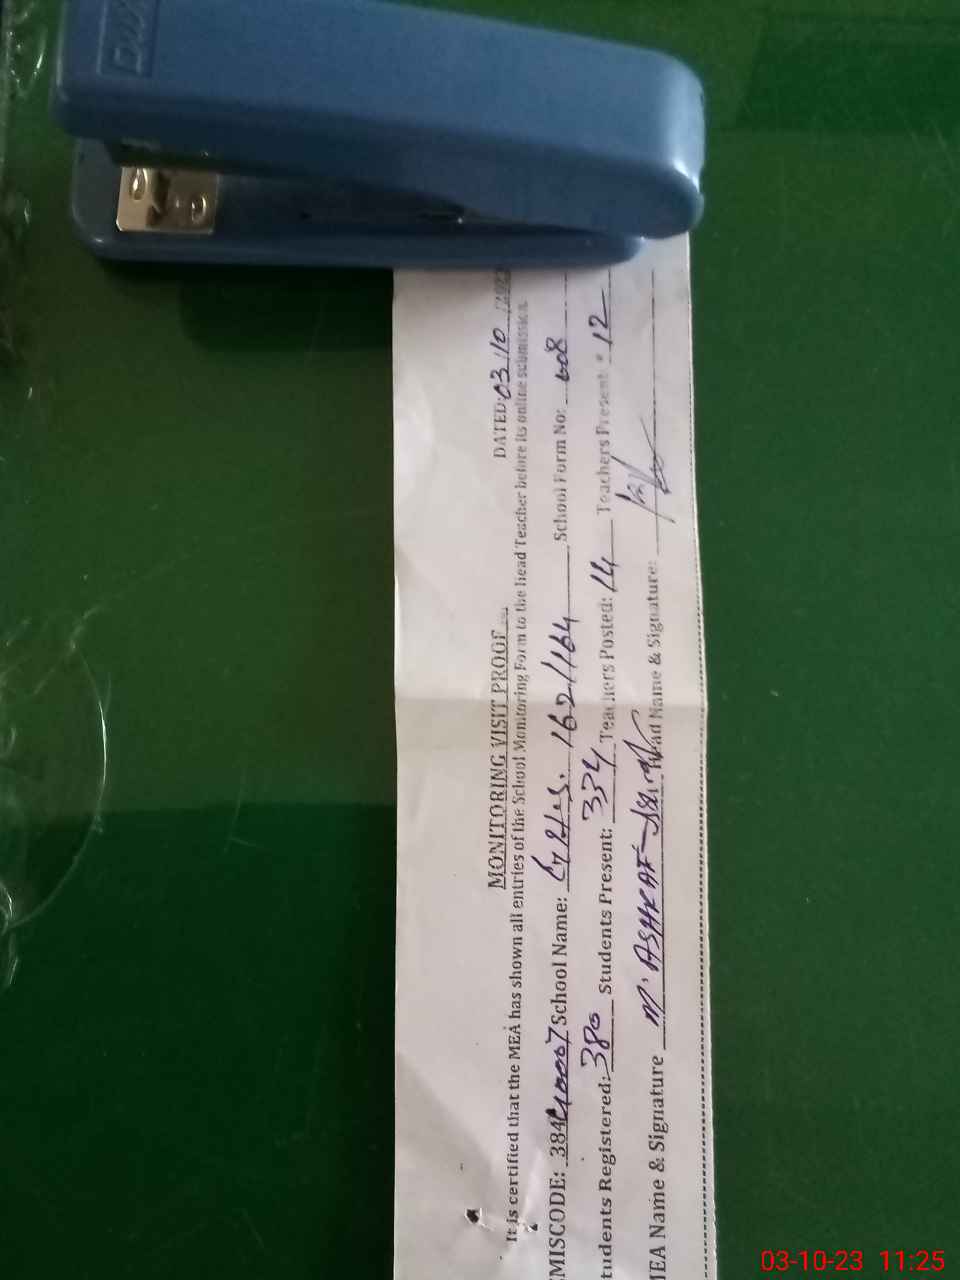 MONITORING VISIT PROOF
DATED: 03/10 /202
It is certified that the MEA has shown all entries of the School Monitoring Form to the Head Teacher before its online submission.
MISCODE: 38440007 School Name: G H.S. 162/164 School Form No: 608
tudents Registered: 380 Students Present: 334 Teachers Posted: 14 Teachers Present * 12
MEA Name & Signature M. ASHRAF Head Name & Signature:
03-10-23 11:25